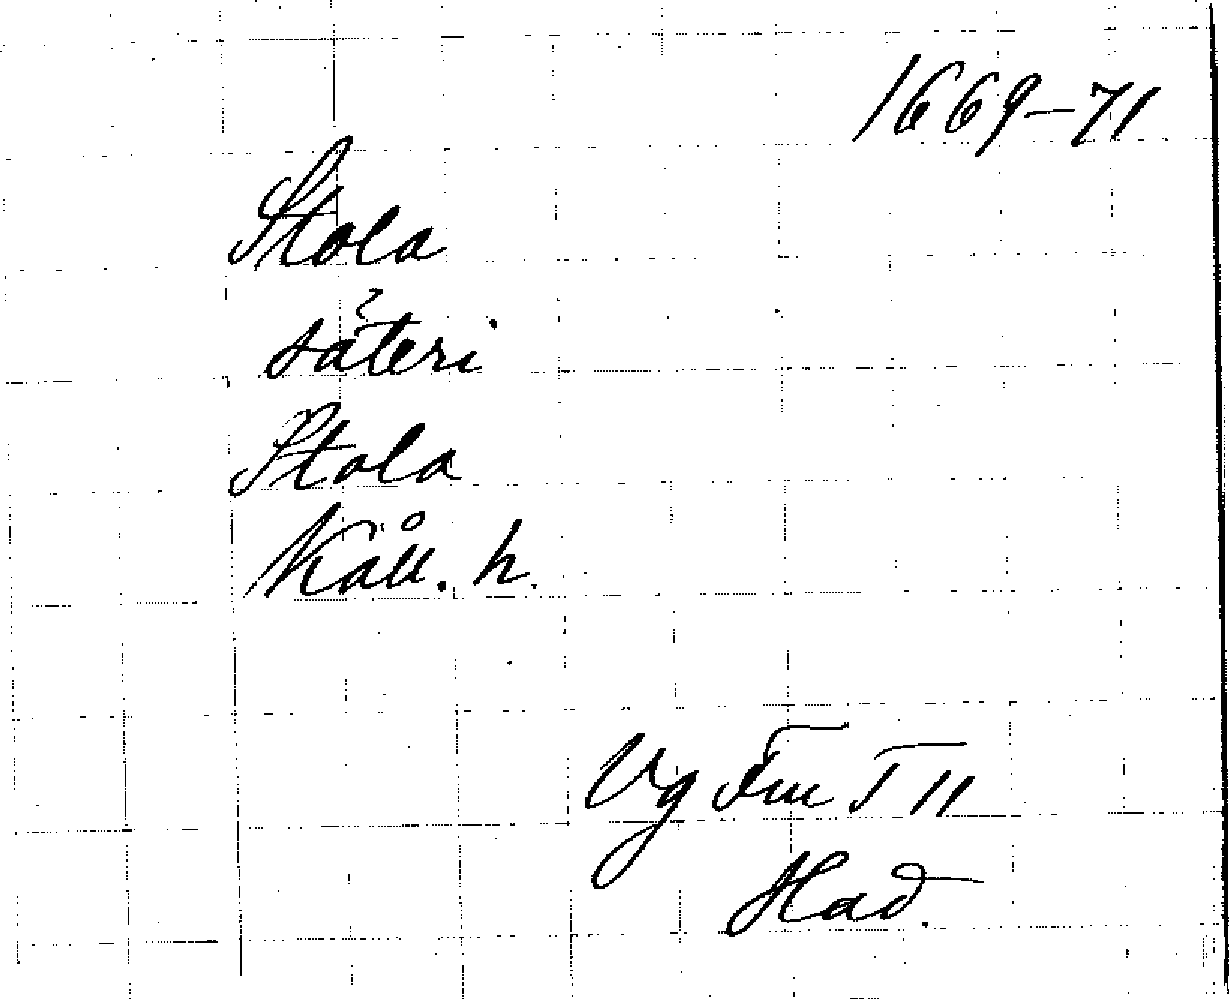 1669-71
Stola
säteri
Stola
Kåll. h.
Vg Fm T 11
Had.